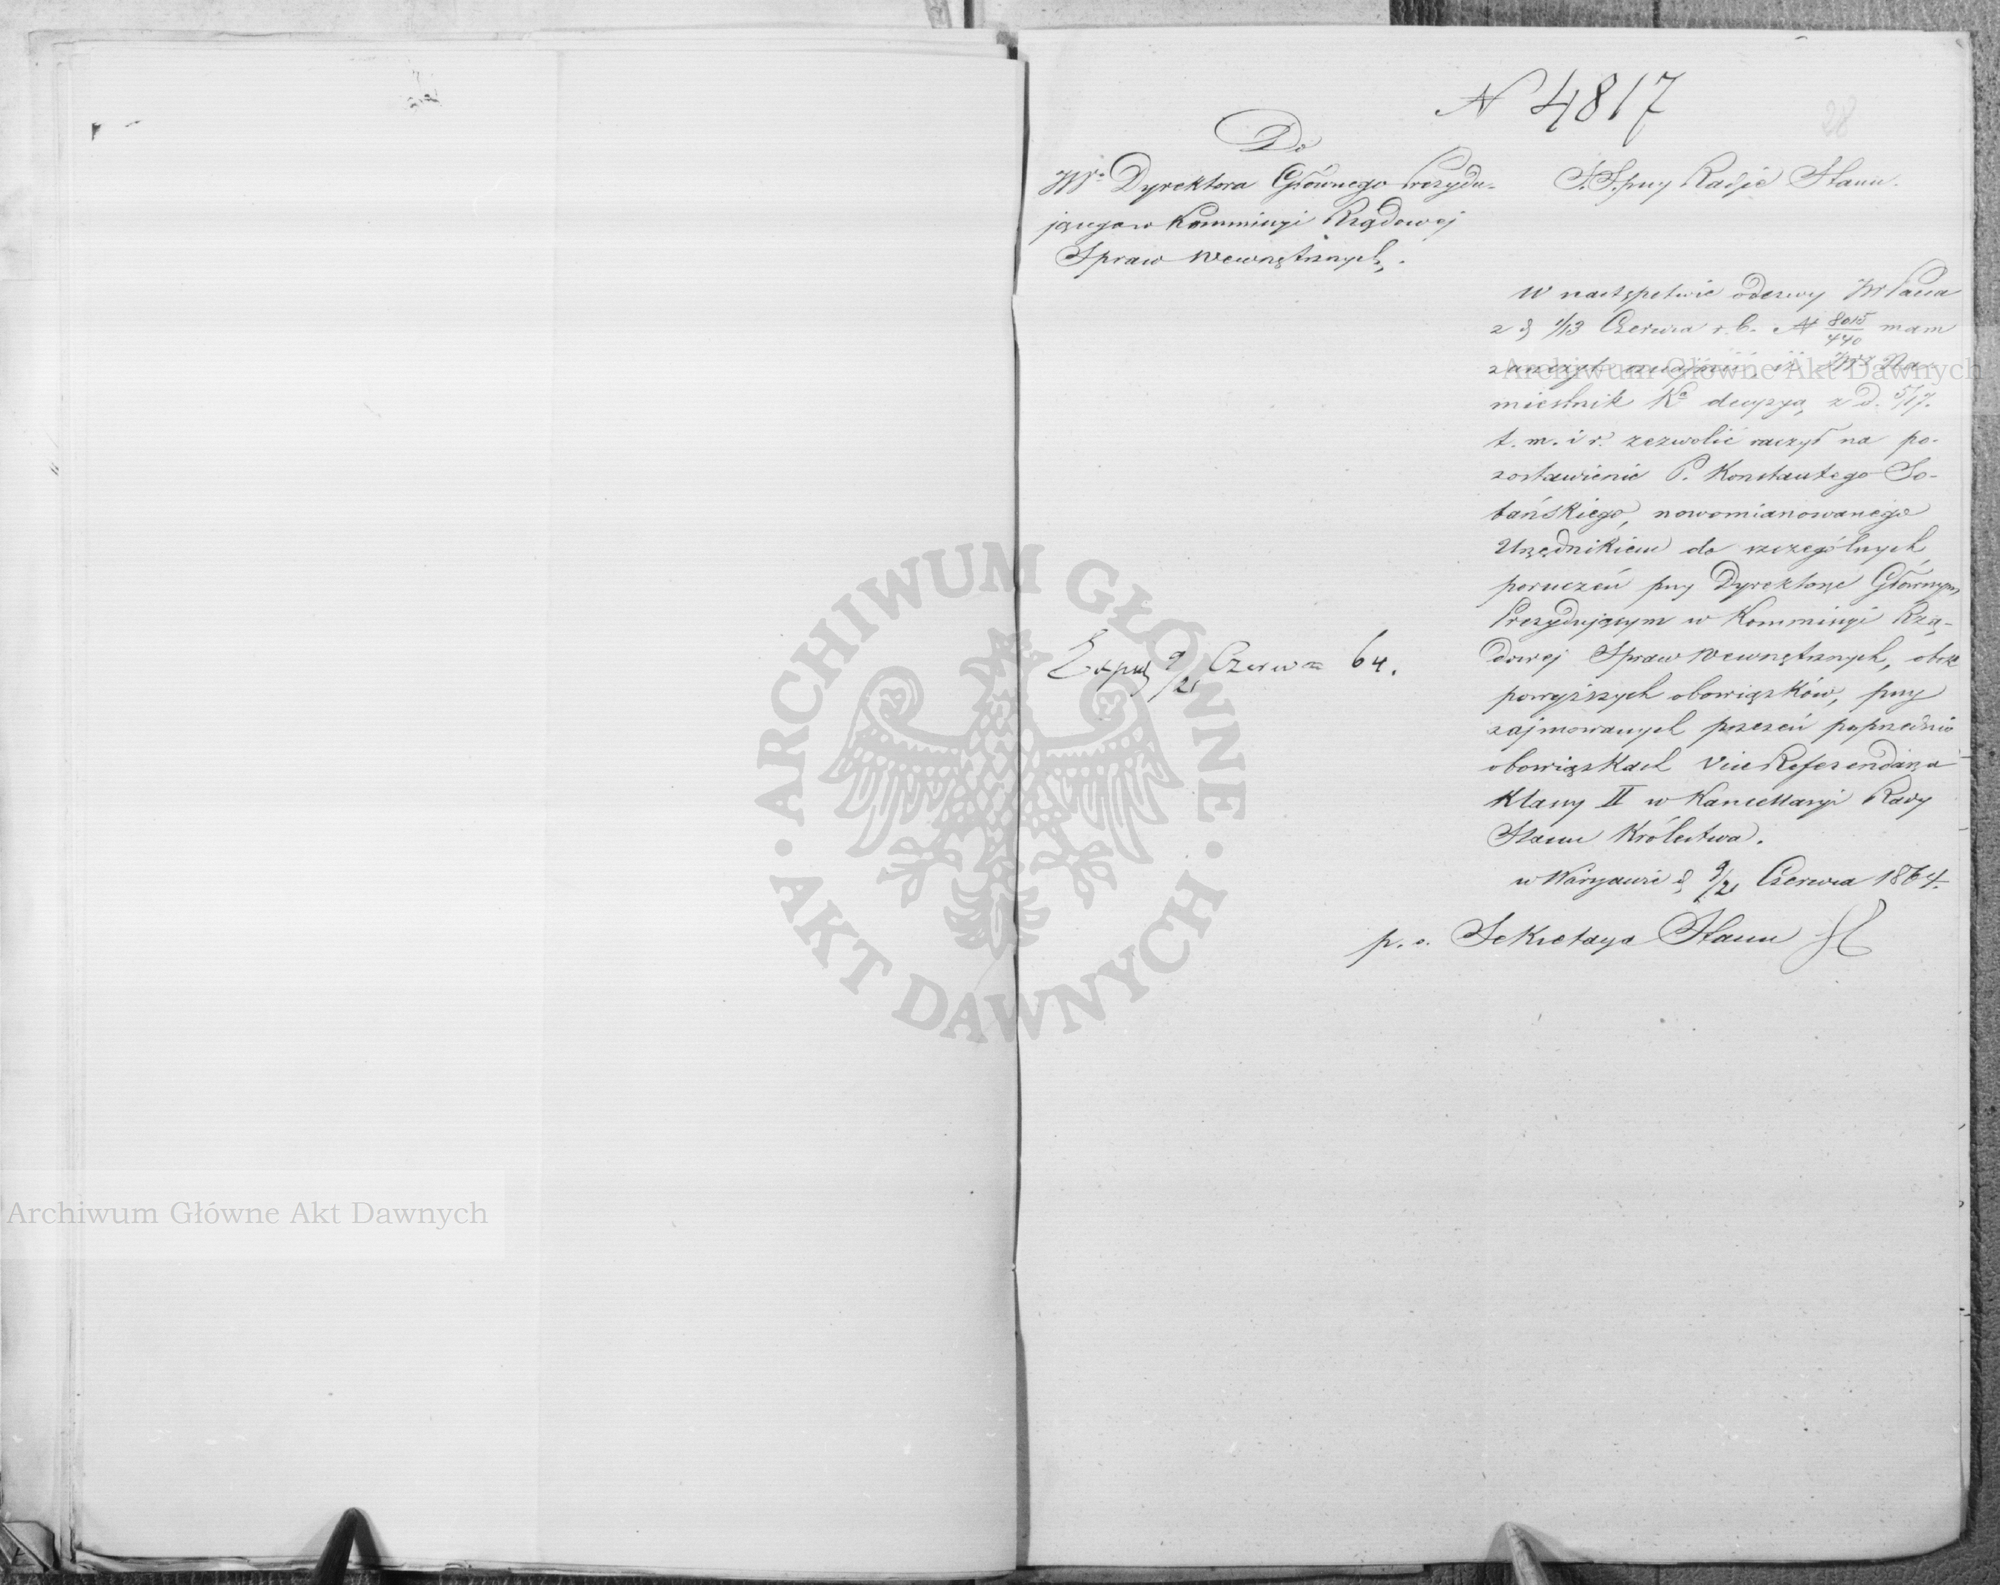 N 4817
28
Do
JW. Dyrektora Głównego Prezydu-
jącego w Kommissyi Rządowej
Spraw Wewnętrznych.
S. S. przy Radzie Stanu.
W następstwie odezwy JW Pana
z d 1/13 Czerwca r. b. N 8015/440 mam
zaszczyt oznajmić, iż JW Na-
miestnik Kr decyzyą z d. 5/17.
t. m. i r. zezwolić raczył na po-
zostawienie P. Konstantego So-
bańskiego, nowomianowanego
Urzędnikiem do szczególnych
poruczeń przy Dyrektorze Głównym
Prezydującym w Kommissyi Rzą-
dowej Spraw Wewnętrznych, obok
powyższych obowiązków, przy
zajmowanych przezeń poprzednio
obowiązkach Vice Referendarza
Klassy II w Kancellaryi Rady
Stanu Królestwa.
w Warszawie d 9/21 Czerwca 1864.
p. o. Sekretarza Stanu
Exped 9/21 Czerwca 64.
Archiwum Główne Akt Dawnych
Archiwum Główne Akt Dawnych
ARCHIWUM GŁÓWNE · AKT DAWNYCH ·